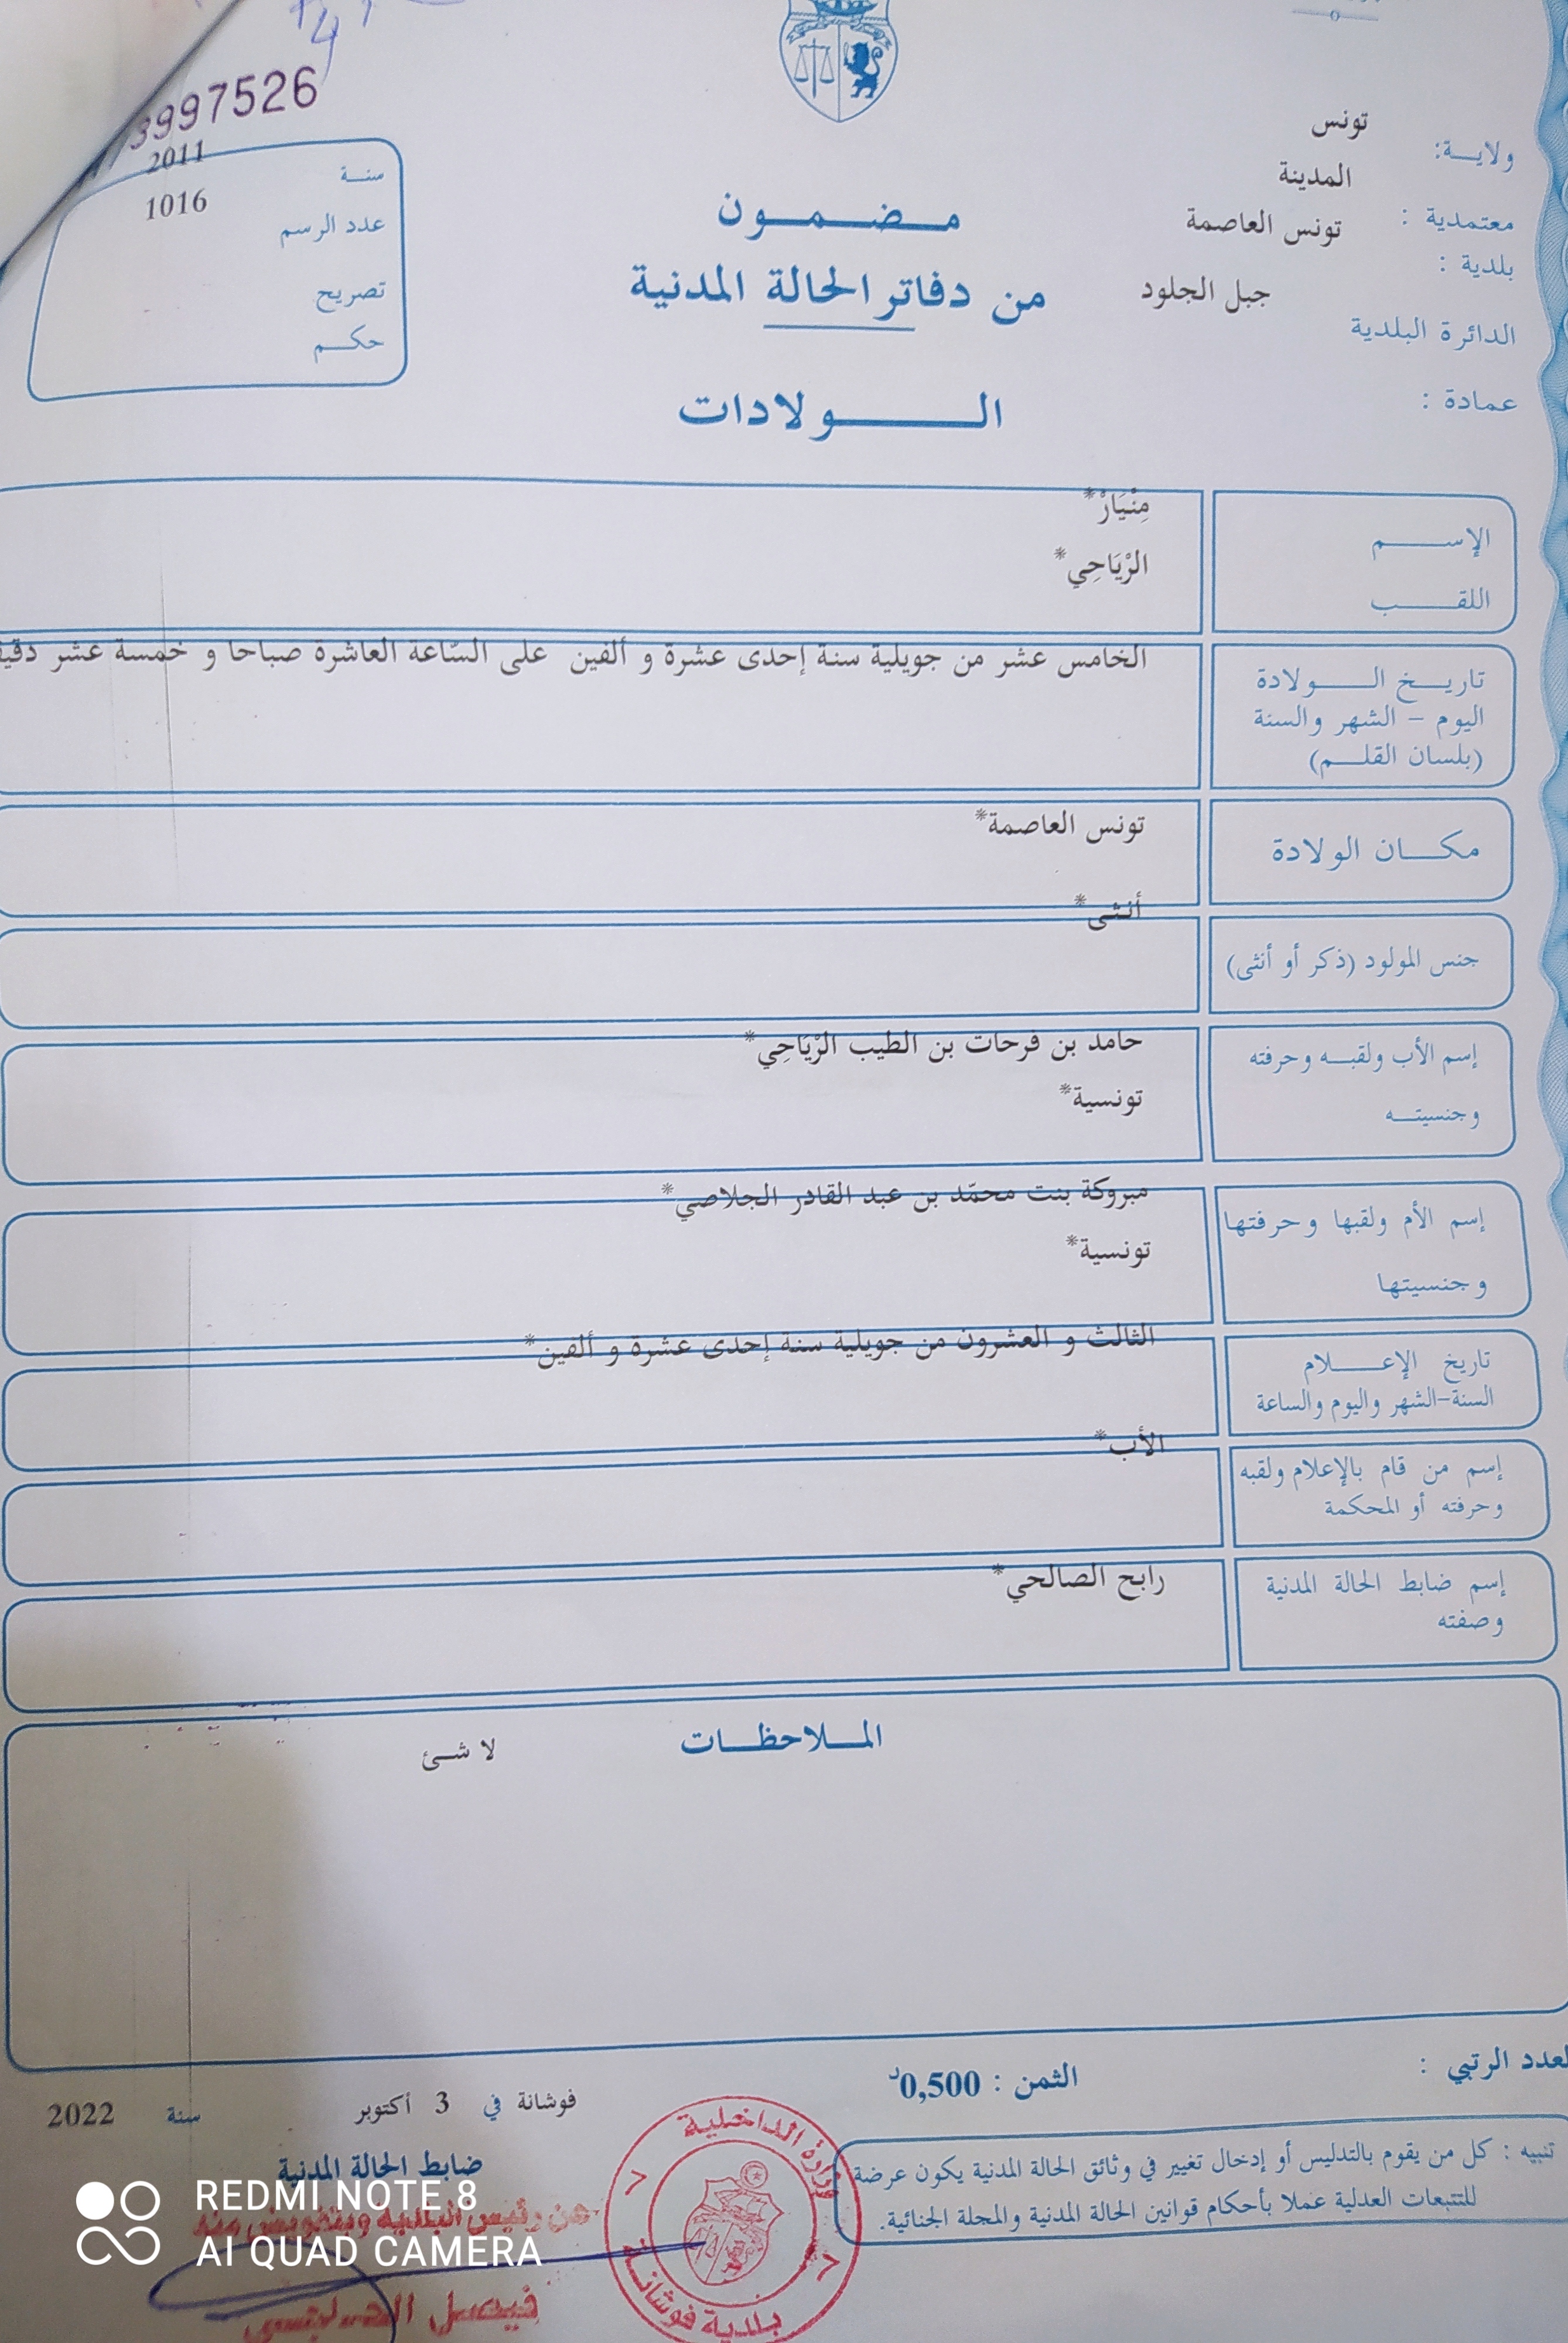 3997526
ولاية: تونس
معتمدية : المدينة
بلدية : تونس العاصمة
الدائرة البلدية جبل الجلود
عمادة :
سنة 2011
عدد الرسم 1016
تصريح
حكم
مضمون
من دفاتر الحالة المدنية
الولادات
الإسم مِنْيَارْ*
اللقب الرْيَاحِي*
تاريخ الولادة
اليوم - الشهر والسنة
(بلسان القلم)
الخامس عشر من جويلية سنة إحدى عشرة و ألفين على السّاعة العاشرة صباحا و خمسة عشر
مكان الولادة تونس العاصمة*
جنس المولود (ذكر أو أنثى) أنثى*
إسم الأب ولقبه وحرفته حامد بن فرحات بن الطيب الرْيَاحِي*
وجنسيته تونسية*
إسم الأم ولقبها وحرفتها مبروكة بنت محمّد بن عبد القادر الجلاصي*
وجنسيتها تونسية*
تاريخ الإعلام
السنة-الشهر واليوم والساعة
الثالث و العشرون من جويلية سنة إحدى عشرة و ألفين*
إسم من قام بالإعلام ولقبه
وحرفته أو المحكمة
الأب*
إسم ضابط الحالة المدنية
وصفته
رابح الصالحي*
الملاحظات
لا شئ
العدد الرتبي :
الثمن : 0,500د
فوشانة في 3 أكتوبر سنة 2022
ضابط الحالة المدنية
عن رئيس البلدية وبتفويض منه
فيصل
وزارة الداخلية
بلدية فوشانة
تنبيه : كل من يقوم بالتدليس أو إدخال تغيير في وثائق الحالة المدنية يكون عرضة
للتتبعات العدلية عملا بأحكام قوانين الحالة المدنية والمجلة الجنائية.
REDMI NOTE 8
AI QUAD CAMERA